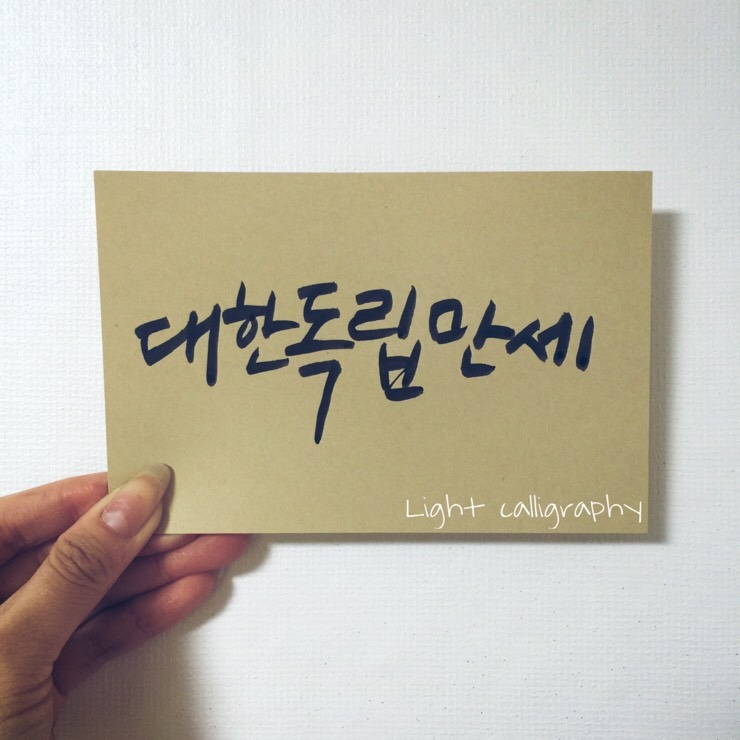 대한독립만세
Light calligraphy